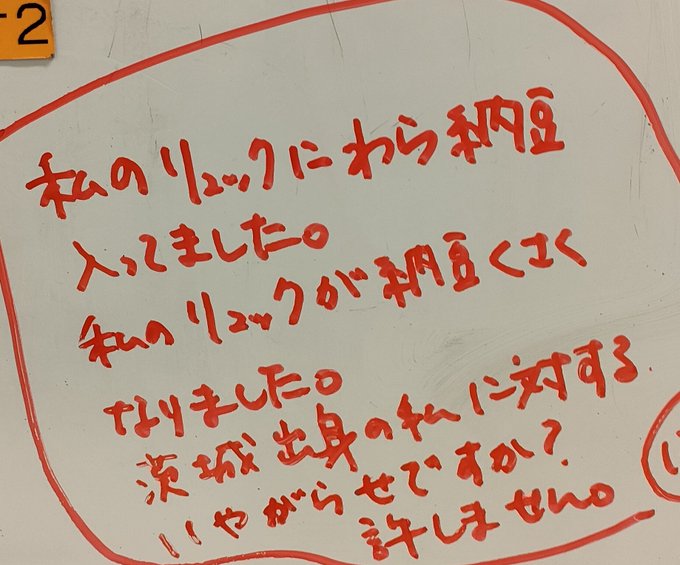 -2
私のリュックにわら納豆
入ってました。
私のリュックが納豆くさく
なりました。
茨城出身の私に対する
いやがらせですか?
許しません。